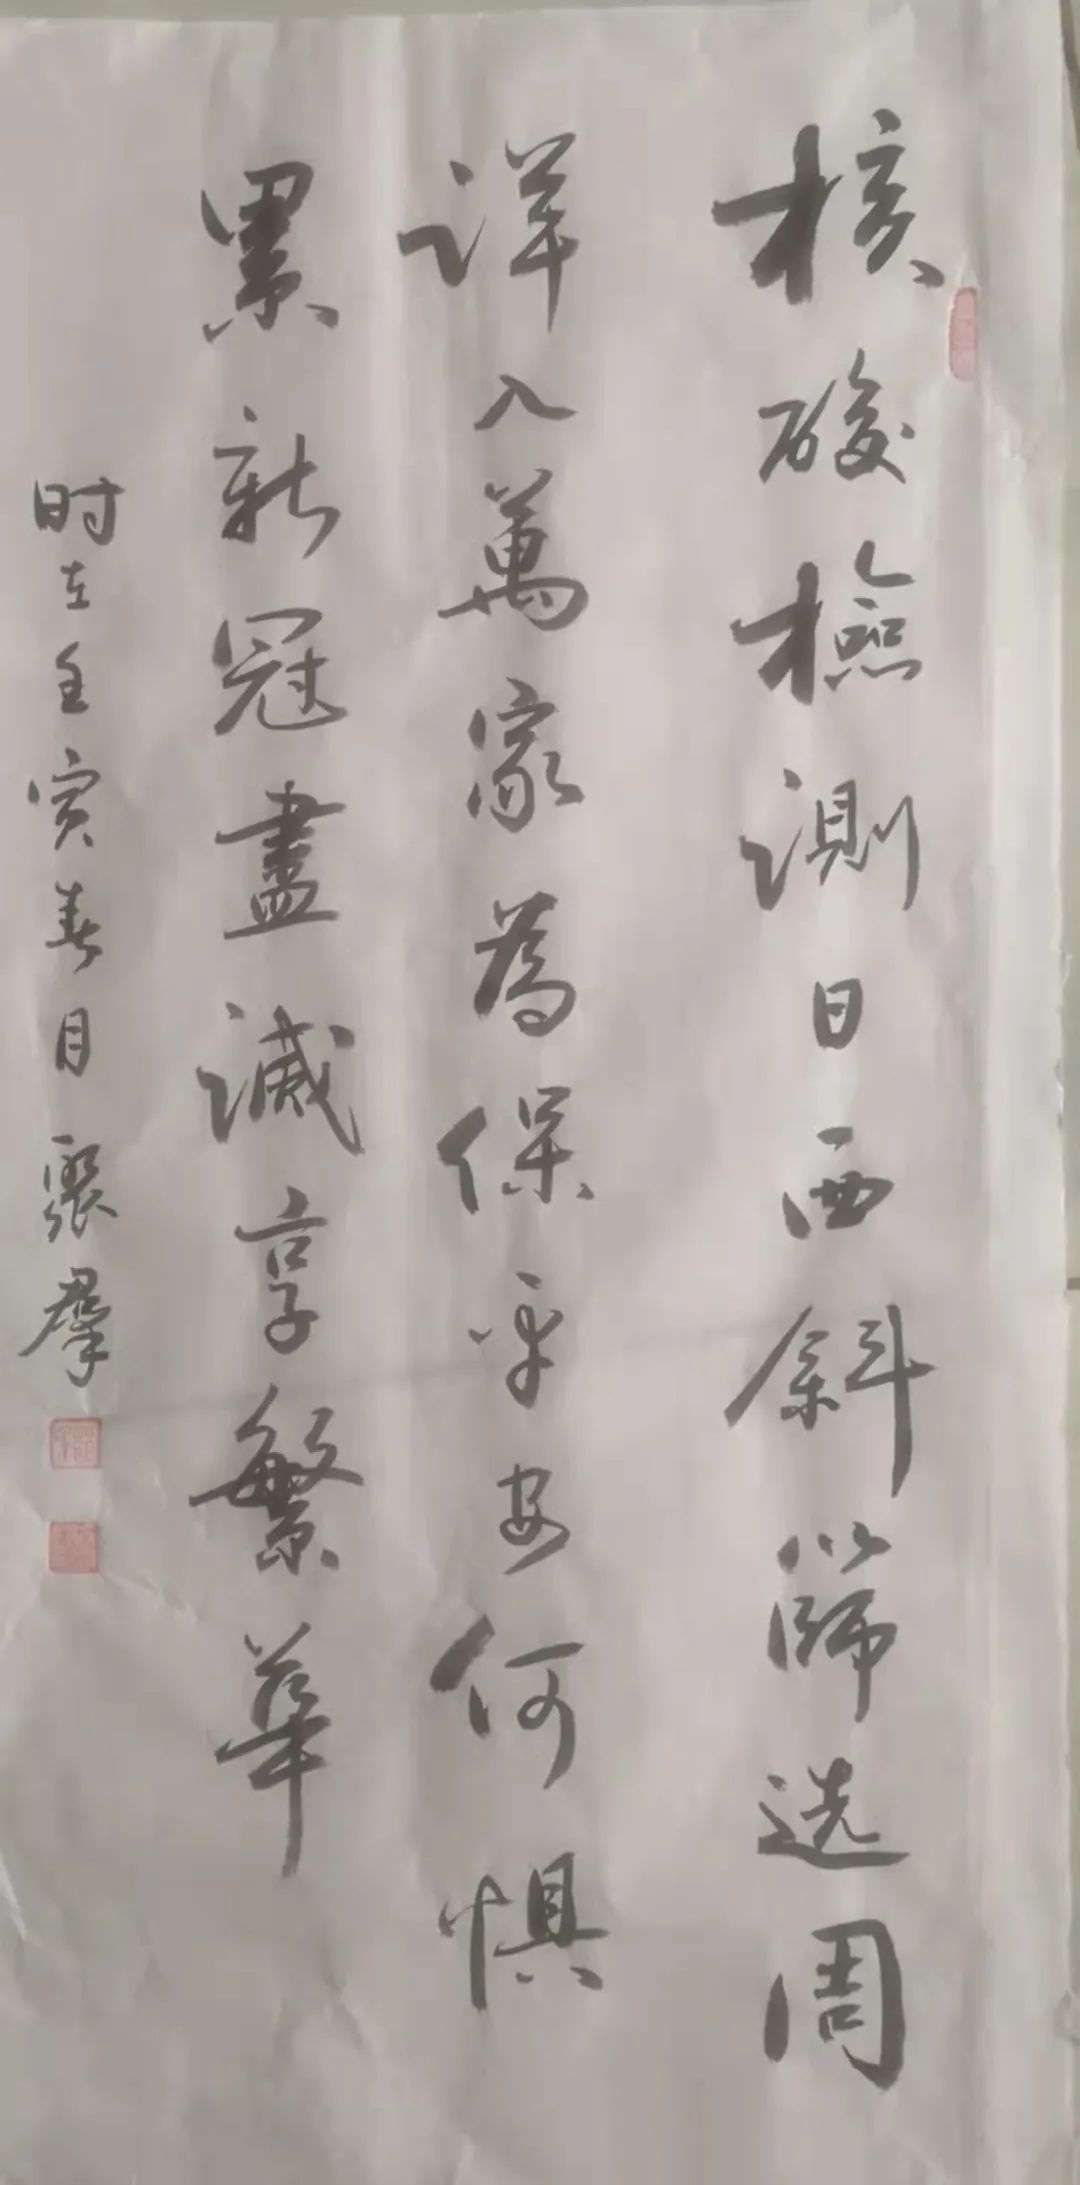 核酸檢測日西斜篩选周
详入萬家為保平安何懼
累新冠盡滅享繁華
时在壬寅春月張羣